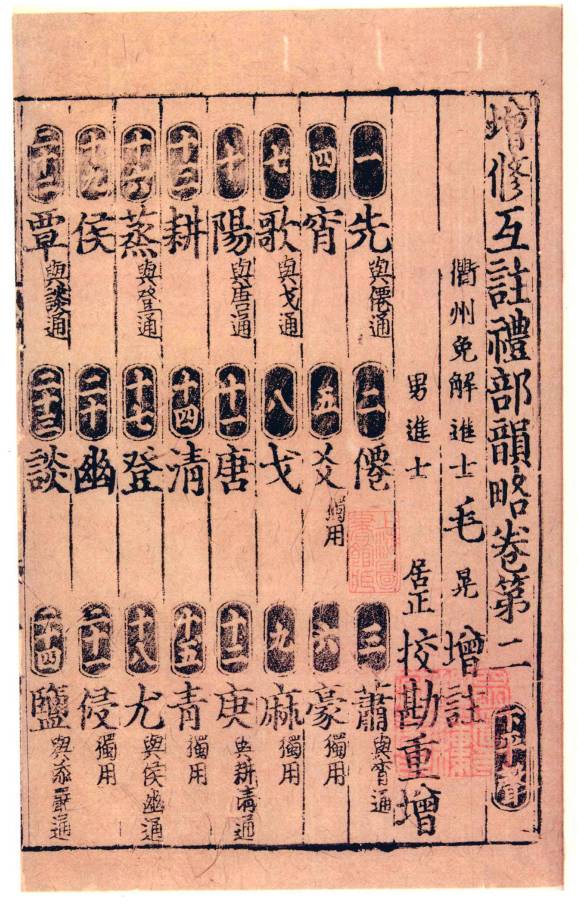 增修互註禮部韻略卷第二 下平聲
衢州免解進士毛晃增註
男進士居正挍勘重增
一先與僊通 二僊 三蕭與宵通
四宵 五爻獨用 六豪獨用
七歌與戈通 八戈 九麻獨用
十陽與唐通 十一唐 十二庚與耕清通
十三耕 十四清 十五青獨用
十六蒸與登通 十七登 十八尤與侯幽通
十九侯 二十幽 二十一侵獨用
二十二覃與談通 二十三談 二十四鹽與添嚴通
上海圖書館藏